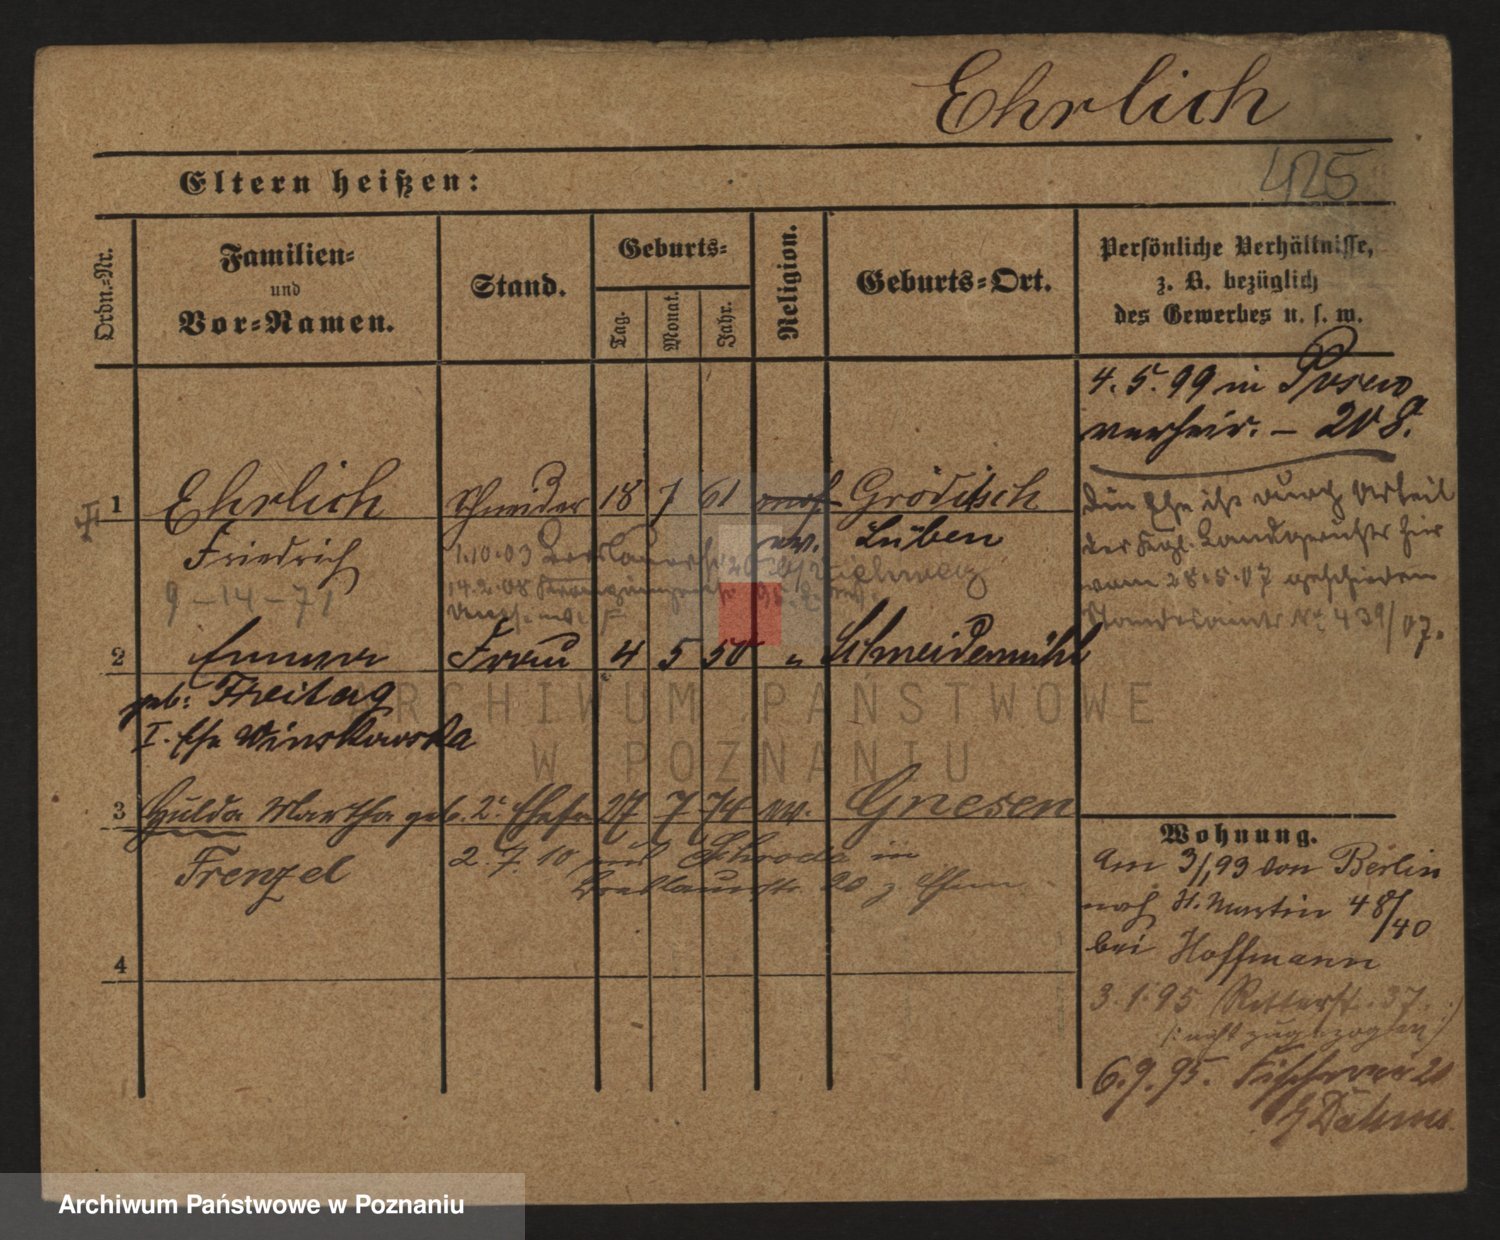 Ehrlich
425
Eltern heißen:
Ordn.-Nr.
Familien-
und
Vor-Namen.
Stand.
Geburts-
Tag.
Monat.
Jahr.
Religion.
Geburts-Ort.
Persönliche Verhältnisse,
z. B. bezüglich
des Gewerbes u. s. w.
4. 5. 99 in Posen
verheir. - 208.
1 Ehrlich Schneider 18 7 61 mos. Gröditsch
Friedrich ev. Lüben
9-14-71
1.10.03 Breslauerstr. 20
14.2.08
Die Ehe ist durch Urteil
des Kgl. Landgerichts hier
vom 28.5.07 geschieden
Standesamt Nr. 439/07.
2 Emma Frau 4 5 50 " Schneidemühl
geb: Freitag
I. Ehe Winskowska
3 Hulda Martha geb. 2t Ehefr 27 7 74 ev. Gnesen
Frenzel
2.7.10 aus Schroda in
Breslauerstr. 20 z. Ehem
4
Wohnung.
Am 3/1 93 von Berlin
nach St. Martin 48/40
bei Hoffmann
3.1.95 Ritterstr. 37.
(: nicht zugezogen :)
6.9.95. Fischerei 21
ARCHIWUM PAŃSTWOWE
W POZNANIU
Archiwum Państwowe w Poznaniu